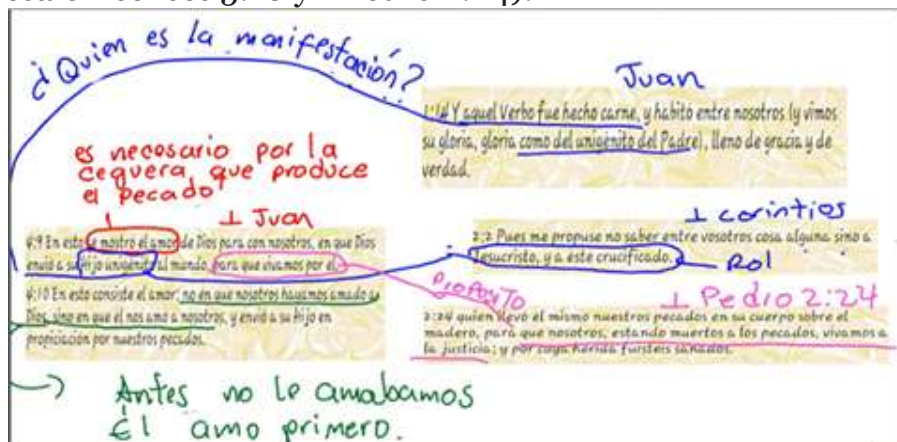 ¿Quien es la manifestación?
Juan
1:14 Y aquel Verbo fue hecho carne, y habitó entre nosotros (y vimos
su gloria, gloria como del unigénito del Padre), lleno de gracia y de
verdad.
es necesario por la
ceguera que produce
el pecado
I Juan
4:9 En esto se mostro el amor de Dios para con nosotros, en que Dios
envió a su Hijo unigenito al mundo, para que vivamos por el.
4:10 En esto consiste el amor: no en que nosotros hayamos amado a
Dios, sino en que el nos amo a nosotros, y envió a su hijo en
propiciación por nuestros pecados.
I corintios
2:2 Pues me propuse no saber entre vosotros cosa alguna sino a
Jesucristo, y a este crucificado.
Rol
Proposito
I Pedro 2:24
2:24 quien llevó el mismo nuestros pecados en su cuerpo sobre el
madero, para que nosotros, estando muertos a los pecados, vivamos a
la justicia; y por cuya herida fuisteis sanados.
Antes no le amabamos
Él amo primero.